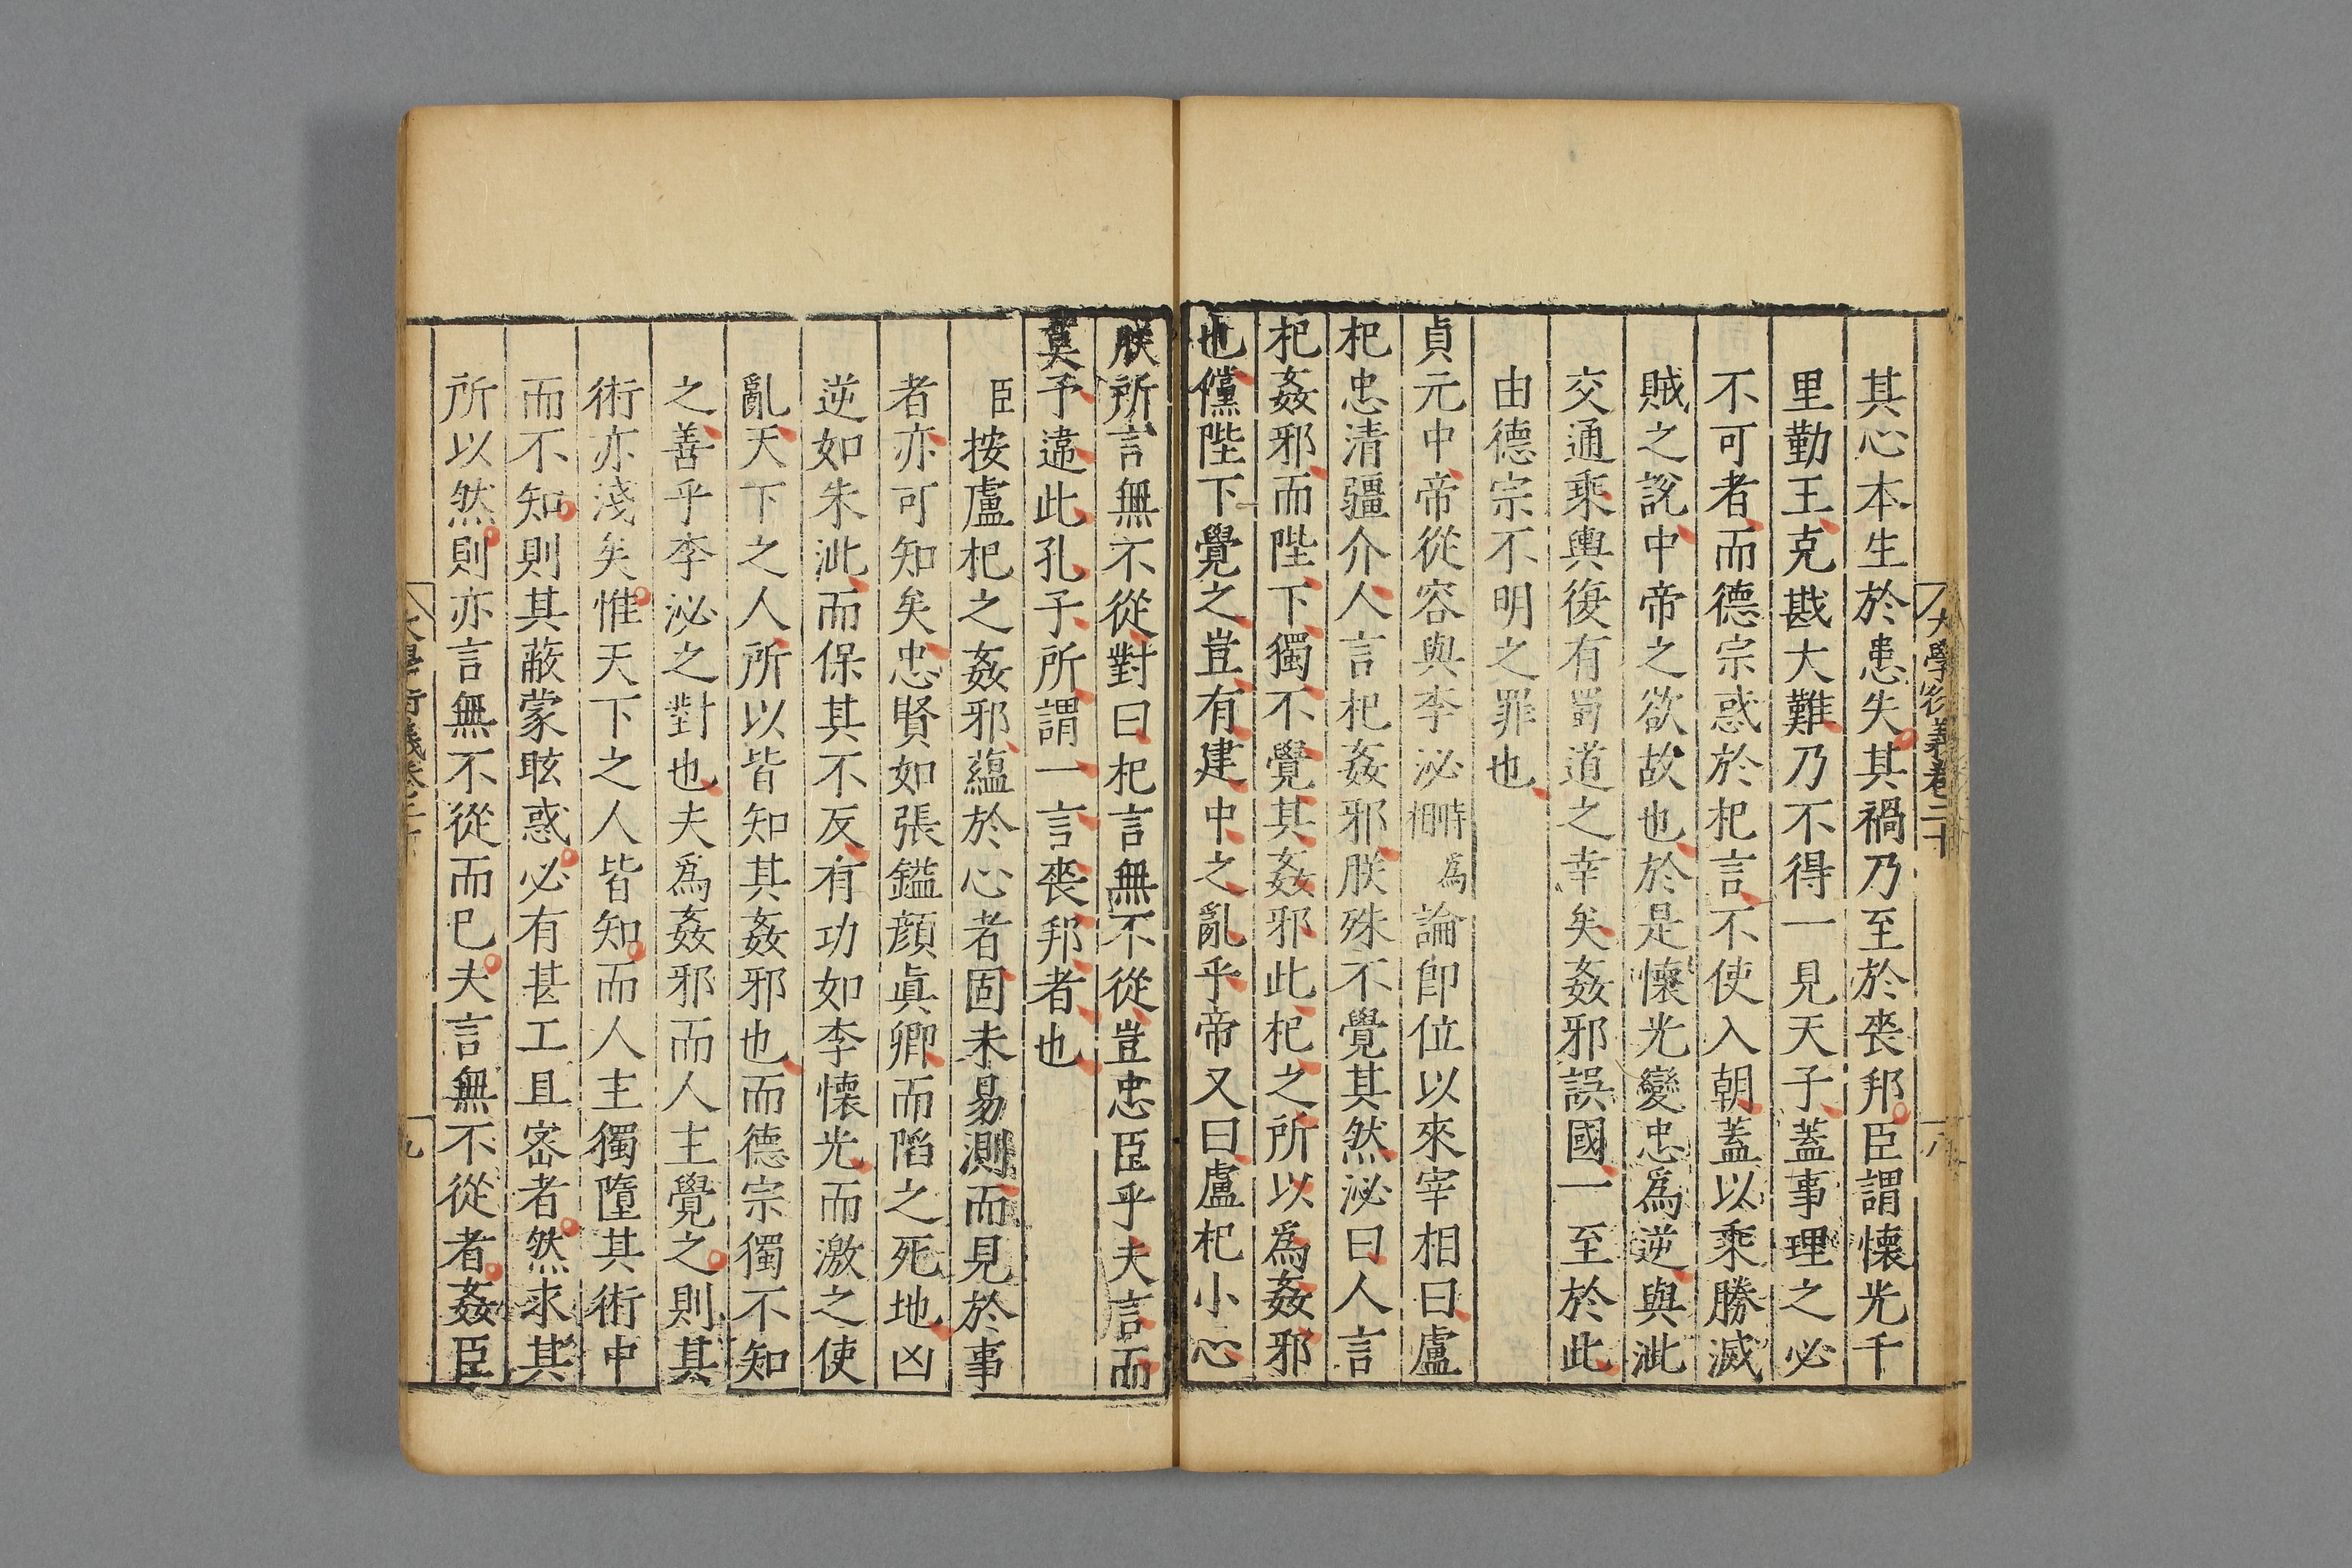 大學衍義卷二十
八
其心本生於患失其禍乃至於喪邦臣謂懷光千
里勤王克戡大難乃不得一見天子葢事理之必
不可者而德宗惑於杞言不使入朝葢以乘勝滅
賊之說中帝之欲故也於是懷光變忠爲逆與泚
交通乘輿復有蜀道之幸矣姦邪誤國一至於此
由德宗不明之罪也
貞元中帝從容與李泌時爲相論即位以來宰相曰盧
杞忠清彊介人言杞姦邪朕殊不覺其然泌曰人言
杞姦邪而陛下獨不覺其姦邪此杞之所以爲姦邪
也儻陛下覺之豈有建中之亂乎帝又曰盧杞小心
朕所言無不從對曰杞言無不從豈忠臣乎夫言而
莫予違此孔子所謂一言喪邦者也
臣按盧杞之姦邪蘊於心者固未易測而見於事
者亦可知矣忠賢如張鎰顔眞卿而陷之死地凶
逆如朱泚而保其不反有功如李懷光而激之使
亂天下之人所以皆知其姦邪也而德宗獨不知
之善乎李泌之對也夫爲姦邪而人主覺之則其
術亦淺矣惟天下之人皆知而人主獨墮其術中
而不知則其蔽蒙眩惑必有甚工且宻者然求其
所以然則亦言無不從而已夫言無不從者姦臣
大學衍義卷二十
九